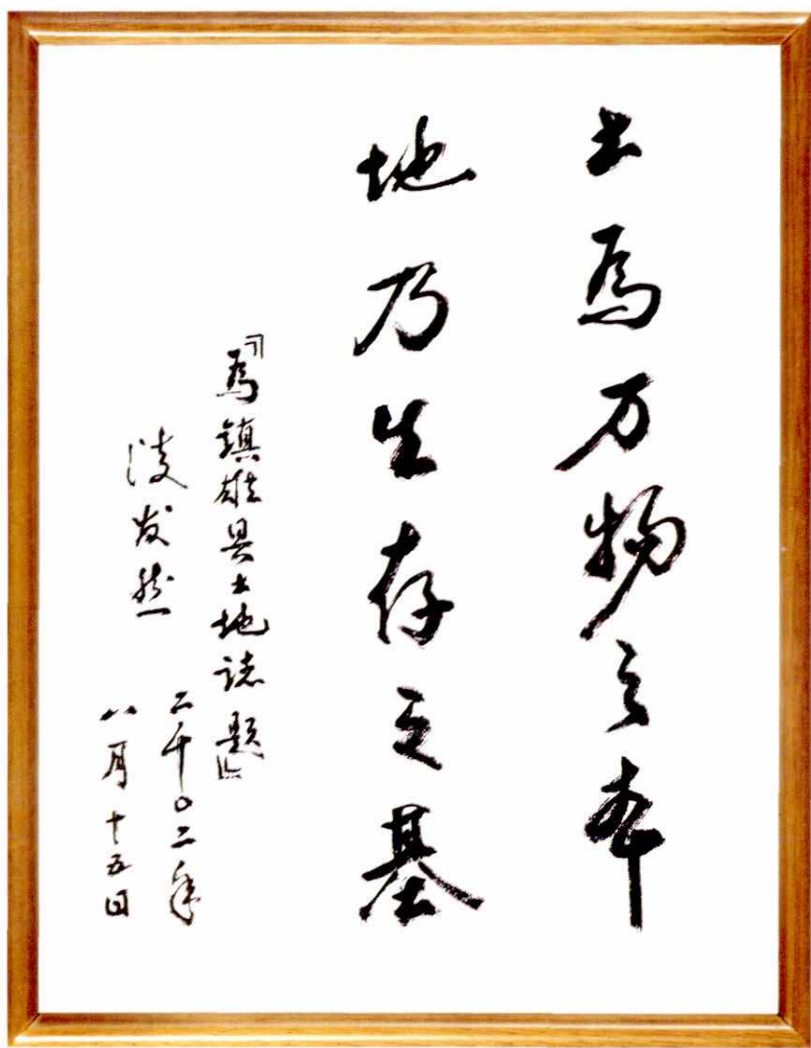 土為万物之本
地乃生存之基
『為鎮雄具土地誌題』
凌发然
二千〇二年
八月十五日